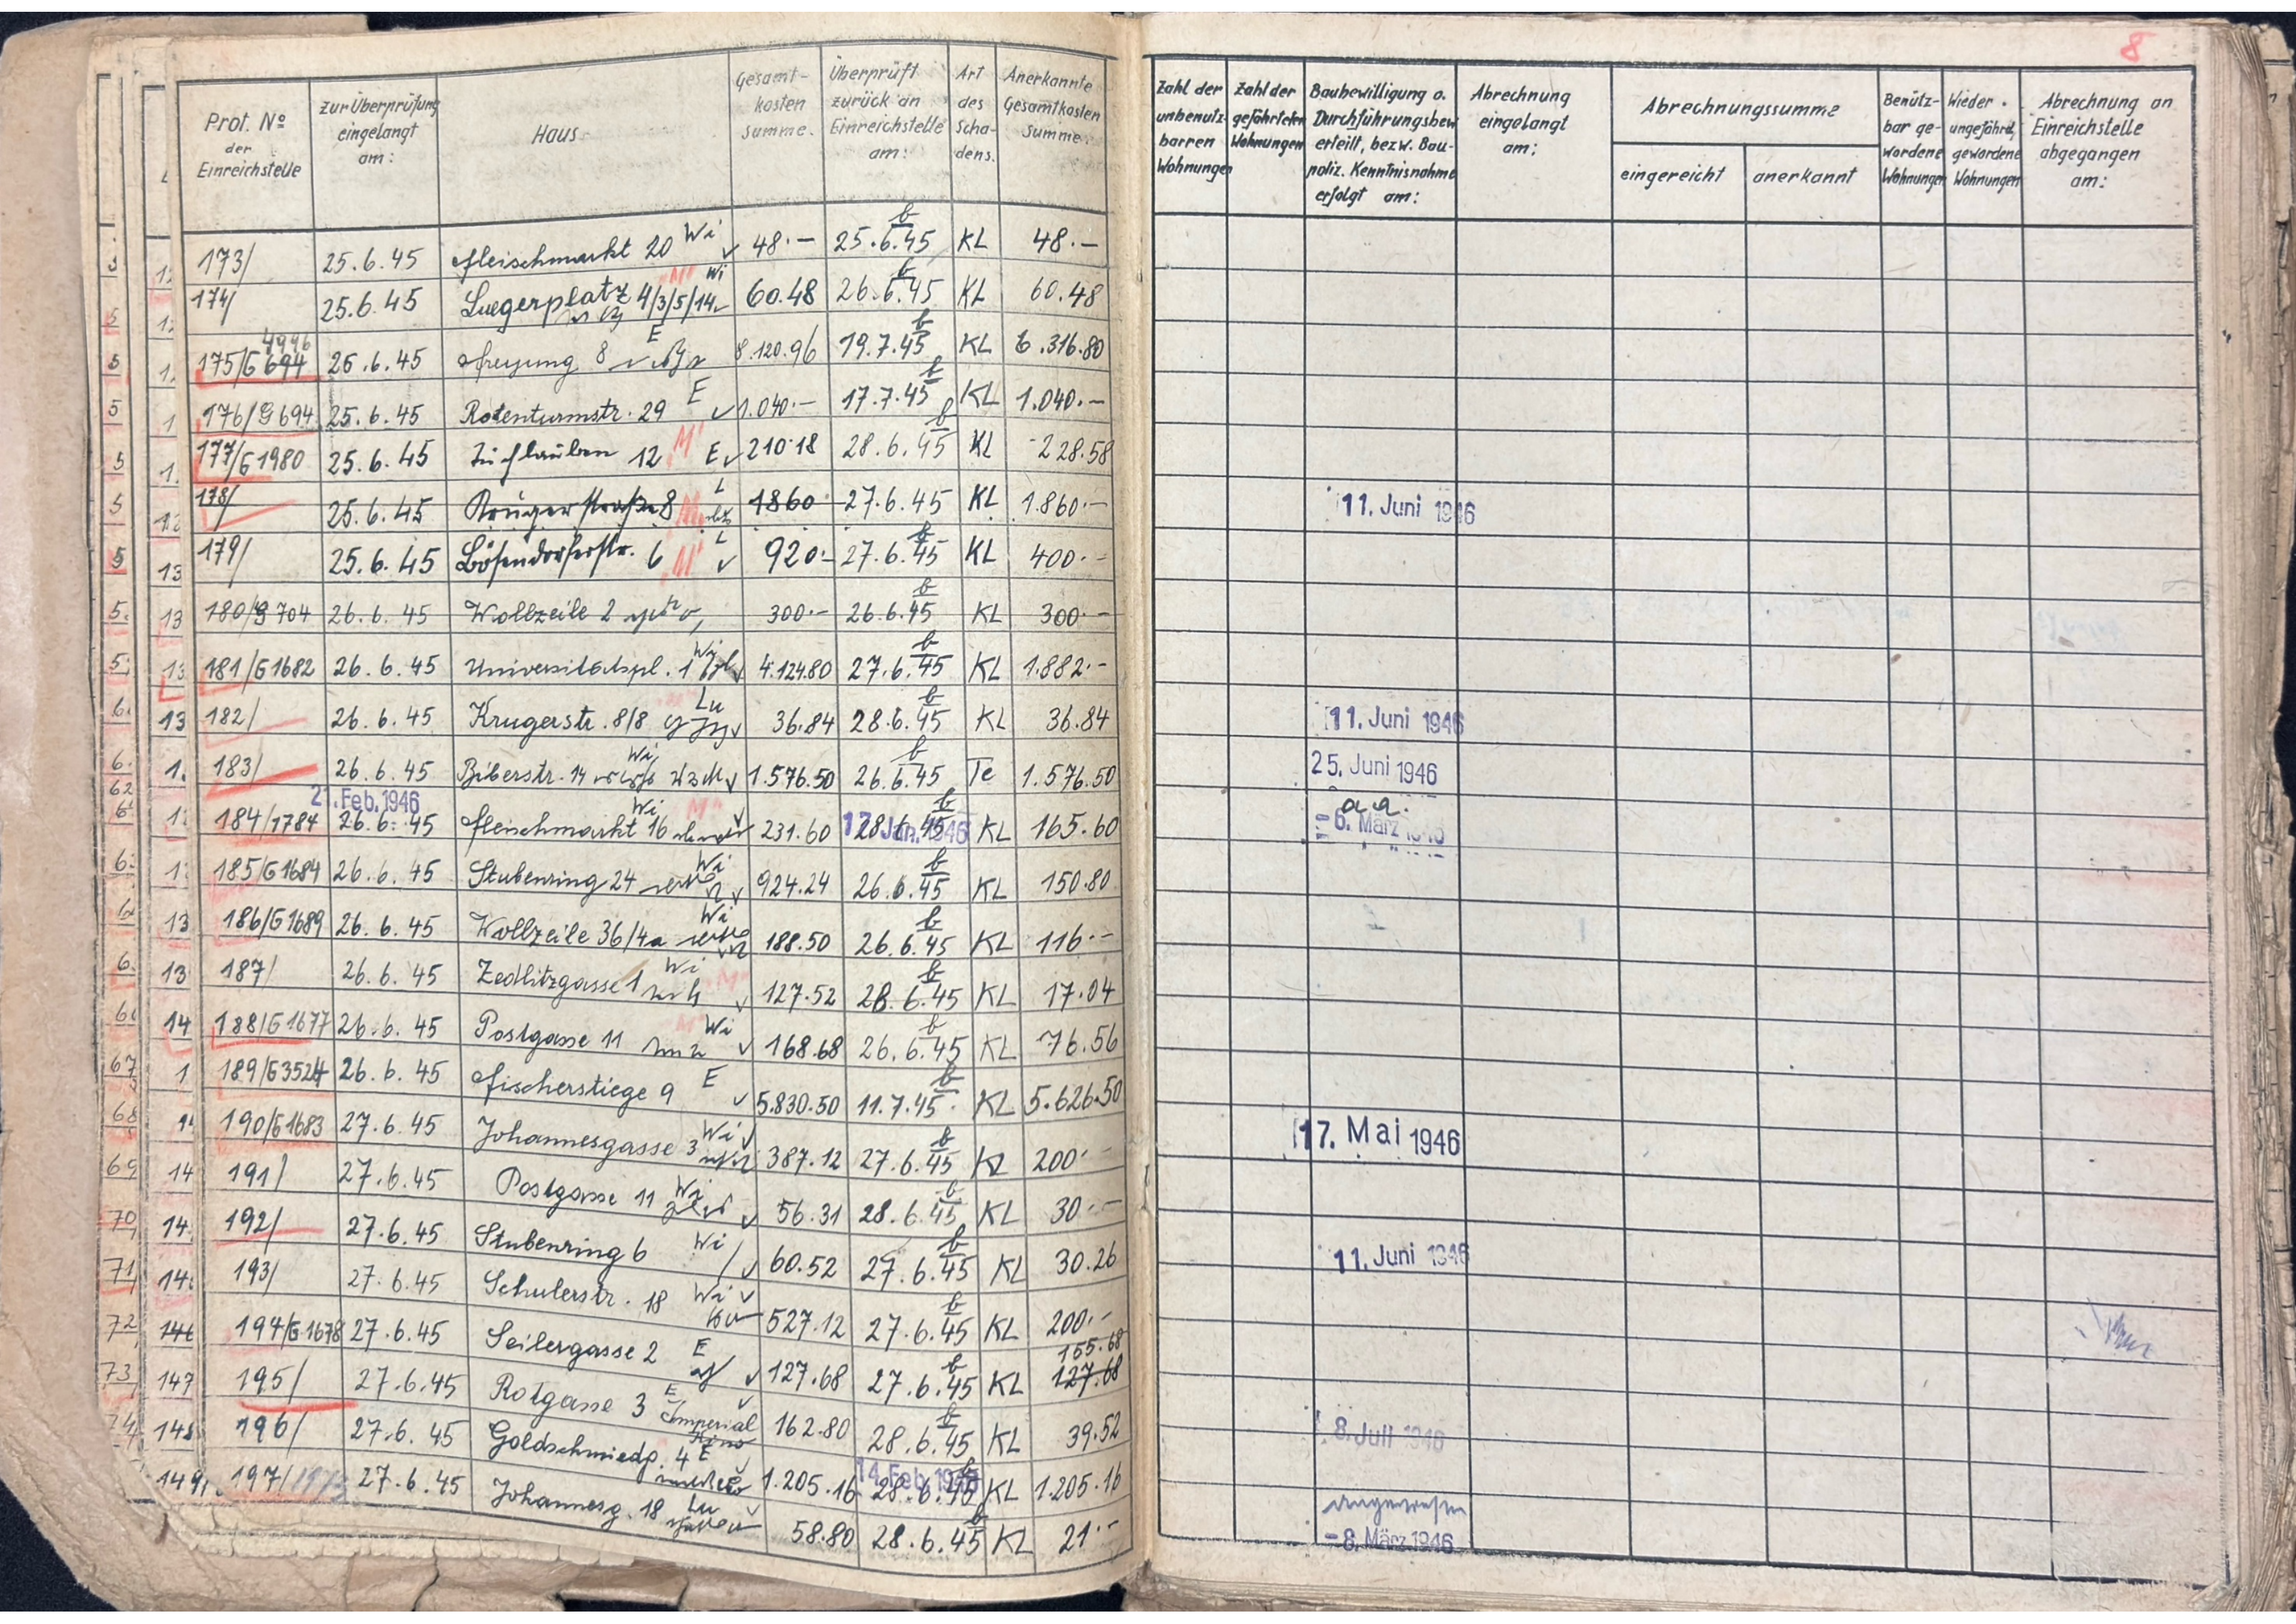 8
Prot. No der Einreichstelle | Zur Überprüfung eingelangt am: | Haus | Gesamt-kosten summe. | Überprüft zurück an Einreichstelle am: | Art des Scha-dens. | Anerkannte Gesamtkosten Summe. | Zahl der unbenutz-barren Wohnungen | Zahl der gefährdeten Wohnungen | Baubewilligung o. Durchführungsbew erteilt, bezw. Bau-poliz. Kenntnisnahme erfolgt am: | Abrechnung eingelangt am: | Abrechnungssumme eingereicht | anerkannt | Benütz-bar ge-wordene Wohnungen | Wieder ungefährd, gewordene Wohnungen | Abrechnung an Einreichstelle abgegangen am:
173/ | 25.6.45 | Fleischmarkt 20 Wi ✓ | 48.— | b 25.6.45 | KL | 48.—
174/ | 25.6.45 | Luegerplatz 4/3/5/14 M Wi | 60.48 | b 26.6.45 | KL | 60.48
175/G 694 4996 | 26.6.45 | Freyung 8 E | 8.120.96 | b 19.7.45 | KL | 6.316.80
176/G 694 | 25.6.45 | Rotenturmstr. 29 E ✓ | 1.040.— | b 17.7.45 | KL | 1.040.—
177/G 1980 | 25.6.45 | Tuchlauben 12 M E ✓ | 210.18 | b 28.6.45 | KL | 228.58
178/ | 25.6.45 | Krügerstraße 8 M L | 1860 | 27.6.45 | KL | 1.860.— | 11. Juni 1946
179/ | 25.6.45 | Bösendorferstr. 6 M L ✓ | 920.- | b 27.6.45 | KL | 400.-
180/G 704 | 26.6.45 | Wollzeile 2 | 300.- | b 26.6.45 | KL | 300.—
181/G 1682 | 26.6.45 | Universitätspl. 1 Wi ✓ | 4.124.80 | b 27.6.45 | KL | 1.882.-
182/ | 26.6.45 | Krugerstr. 8/8 Lu ✓ | 36.84 | b 28.6.45 | KL | 36.84 | 11. Juni 1946
183/ | 26.6.45 | Biberstr. 14 Wi ✓ | 1.576.50 | b 26.6.45 | Te | 1.576.50 | 25. Juni 1946
184/1784 | 21. Feb. 1946 26.6.45 | Fleischmarkt 16 Wi M ✓ | 231.60 | b 28.6.45 17. Jan. 1946 | KL | 165.60 | a.a. - 6. März 1946
185/G 1684 | 26.6.45 | Stubenring 24 Wi ✓ | 924.24 | b 26.6.45 | KL | 150.80
186/G 1689 | 26.6.45 | Wollzeile 36/4a Wi | 188.50 | b 26.6.45 | KL | 116.—
187/ | 26.6.45 | Zedlitzgasse 1 Wi M ✓ | 127.52 | b 28.6.45 | KL | 17.04
188/G 1677 | 26.6.45 | Postgasse 11 Wi ✓ | 168.68 | b 26.6.45 | KL | 76.56
189/G 3524 | 26.6.45 | Fischerstiege 9 E ✓ | 5.830.50 | b 11.7.45 | KL | 5.626.50
190/G 1683 | 27.6.45 | Johannesgasse 3 Wi ✓ | 387.12 | b 27.6.45 | KL | 200.- | 17. Mai 1946
191/ | 27.6.45 | Postgasse 11 Wi ✓ | 56.31 | b 28.6.45 | KL | 30.—
192/ | 27.6.45 | Stubenring 6 Wi / ✓ | 60.52 | b 27.6.45 | KL | 30.26 | 11. Juni 1946
193/ | 27.6.45 | Schulerstr. 18 Wi ✓ | 527.12 | b 27.6.45 | KL | 200.-
194/G 1678 | 27.6.45 | Seilergasse 2 E ✓ | 127.68 | b 27.6.45 | KL | 155.68 127.68
195/ | 27.6.45 | Rotgasse 3 E Imperial Kino ✓ | 162.80 | b 28.6.45 | KL | 39.52 | 8. Juli 1946
196/ | 27.6.45 | Goldschmiedg. 4 E ✓ | 1.205.16 | 28.6.45 14. Feb. 1946 | KL | 1.205.16
197/ | 27.6.45 | Johannesg. 18 Lu ✓ | 58.80 | b 28.6.45 | KL | 21.- | angewiesen - 8. März 1946